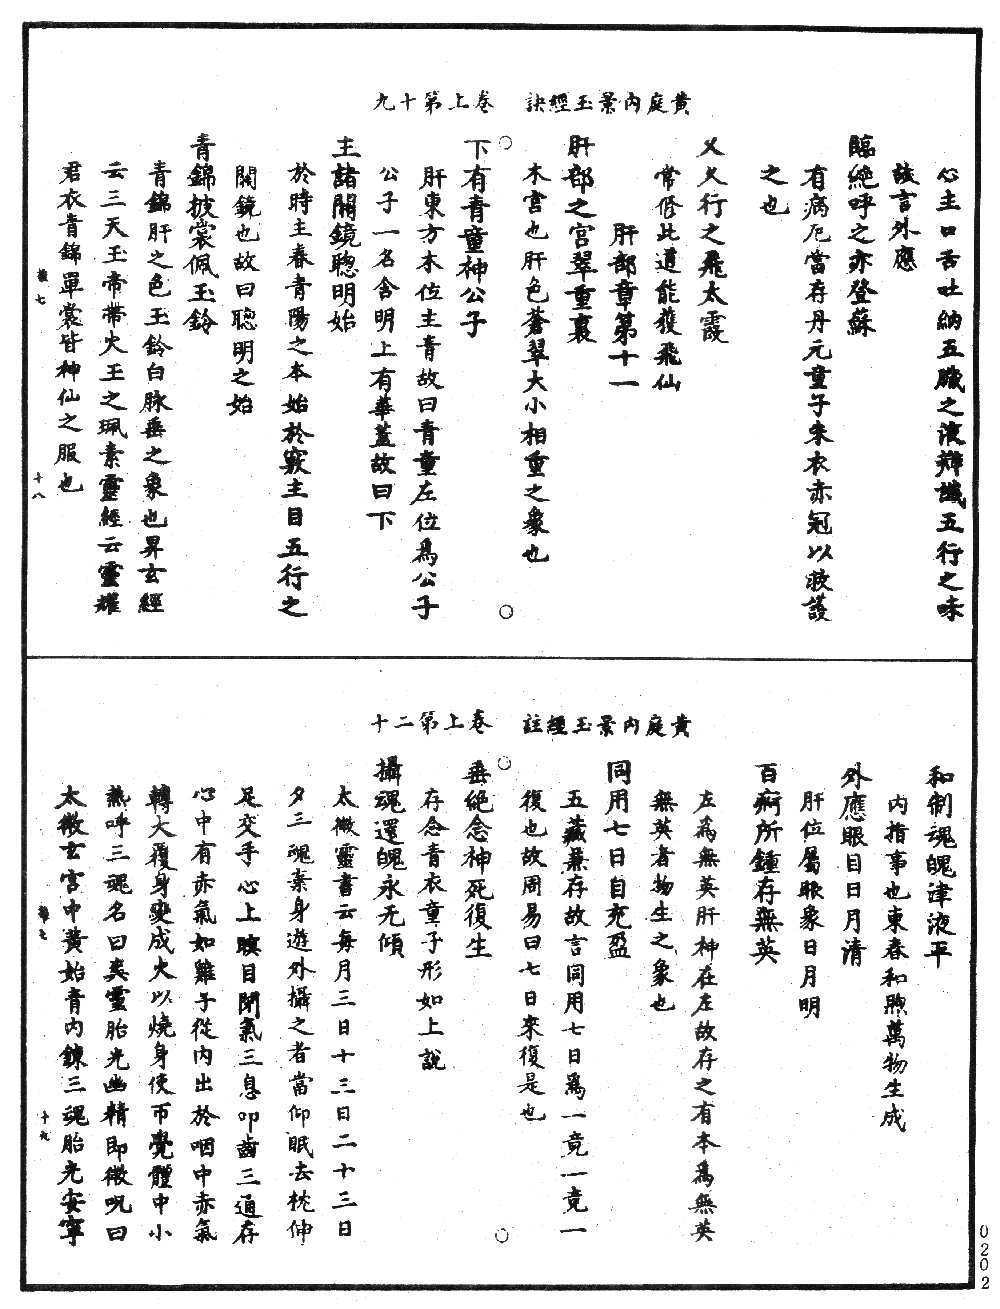 黄庭内景玉經訣　卷上第十九
心主口舌吐納五臟之液辯識五行之味
該言外應
臨絶呼之亦登蘇
有病厄當存丹元童子朱衣赤冠以救護
之也
乂火行之飛太霞
常修此道能獲飛仙
肝部章第十一
肝部之宫翠重裏
木宫也肝色蒼翠大小相重之象也
下有青童神公子
肝東方木位主青故曰青童左位爲公子
公子一名含明上有華蓋故曰下
主諸關鏡聰明始
於時主春青陽之本始於竅主目五行之
關鏡也故曰聰明之始
青錦披裳佩玉鈴
青錦肝之色玉鈴白脉垂之象也昇玄經
云三天玉帝帶火玉之珮素靈經云靈耀
君衣青錦單裳皆神仙之服也
十八
黄庭内景玉經註　卷上第二十
和制魂魄津液平
内指事也東春和煦萬物生成
外應眼目日月清
肝位屬眼象日月明
百痾所鍾存無英
左爲無英肝神在左故存之有本爲無英
無英者物生之象也
同用七日自充盈
五藏兼存故言同用七日爲一竟一竟一
復也故周易曰七日來復是也
垂絶念神死復生
存念青衣童子形如上說
攝魂還魄永无傾
太微靈書云每月三日十三日二十三日
夕三魂棄身遊外攝之者當仰眠去枕伸
足交手心上瞑目閉氣三息叩齒三通存
心中有赤氣如雞子從内出於咽中赤氣
轉大覆身變成火以燒身使帀覺體中小
熱呼三魂名曰爽靈胎光幽精即微呪曰
太微玄宫中黄始青内鍊三魂胎光安寧
十九
0202